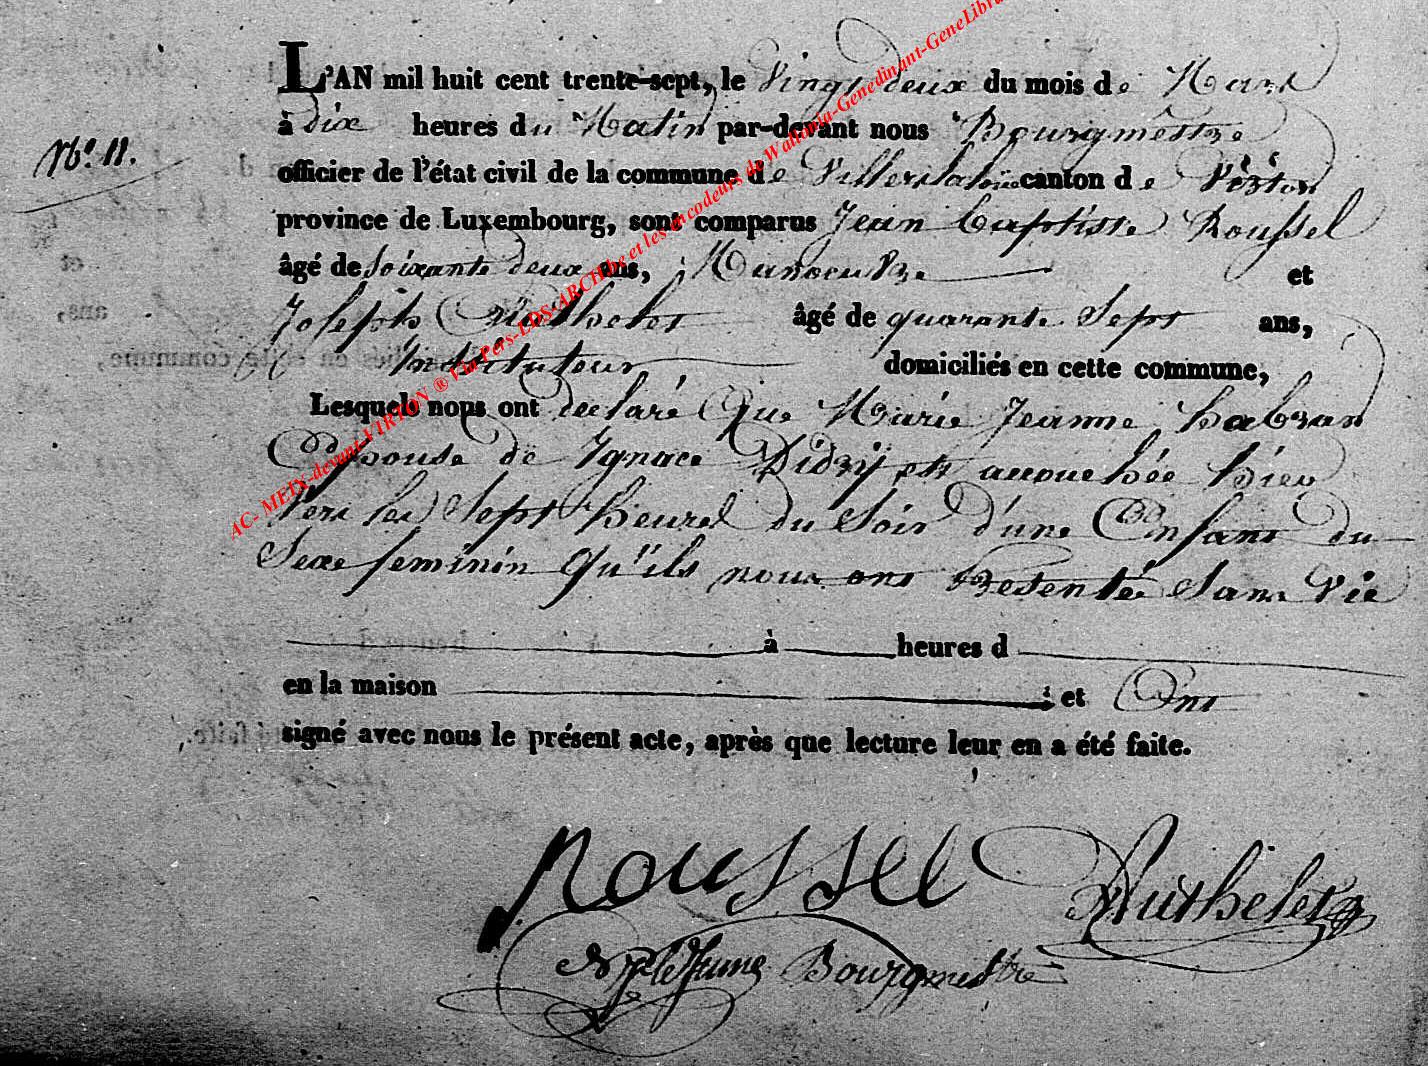 L'AN mil huit cent trente-sept, le Vingt deux du mois de Mars
à dix heures du Matin par-devant nous Bourgmestre
N.o 11.
officier de l'état civil de la commune de Villerslaloue canton de Virton
province de Luxembourg, sont comparus Jean Baptiste Roussel
âgé de soixante deux ans, Manoeuvre et
Joseph Authelet âgé de quarante Sept ans,
Instituteur domiciliés en cette commune,
Lesquels nous ont déclaré Que Marie Jeanne habran
Epouse de Ignace Didry est accouchée hier
Vers les Sept heures du Soir d'une Enfant du
Sexe feminin Qu'ils nous ont Presenté Sans Vie
à heures d
en la maison ; et Ont
signé avec nous le présent acte, après que lecture leur en a été faite.
Roussel Authelet
Lejeune Bourgmestre
AC- MEIX-devant-VIRTON ® Via Pers-LDS-ARCHIbe et les encodeurs de Wallonia-Genedinant-GeneLibra